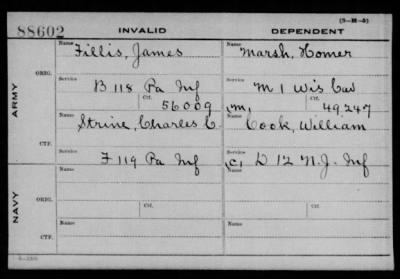 (3-M-5)
88602 INVALID DEPENDENT
Name Fillis, James Name Marsh, Homer
ORIG.
Service B 118 Pa Inf Service M 1 Wis Cav
ARMY
Ctf. 56009 (M) Ctf. 49,247
Name Strine, Charles C. Name Cook, William
CTF.
Service F 119 Pa Inf Service (C) D 12 N.J. Inf
Name Name
NAVY
ORIG.
Service Ctf. Service Ctf.
Name Name
CTF.
Service Service